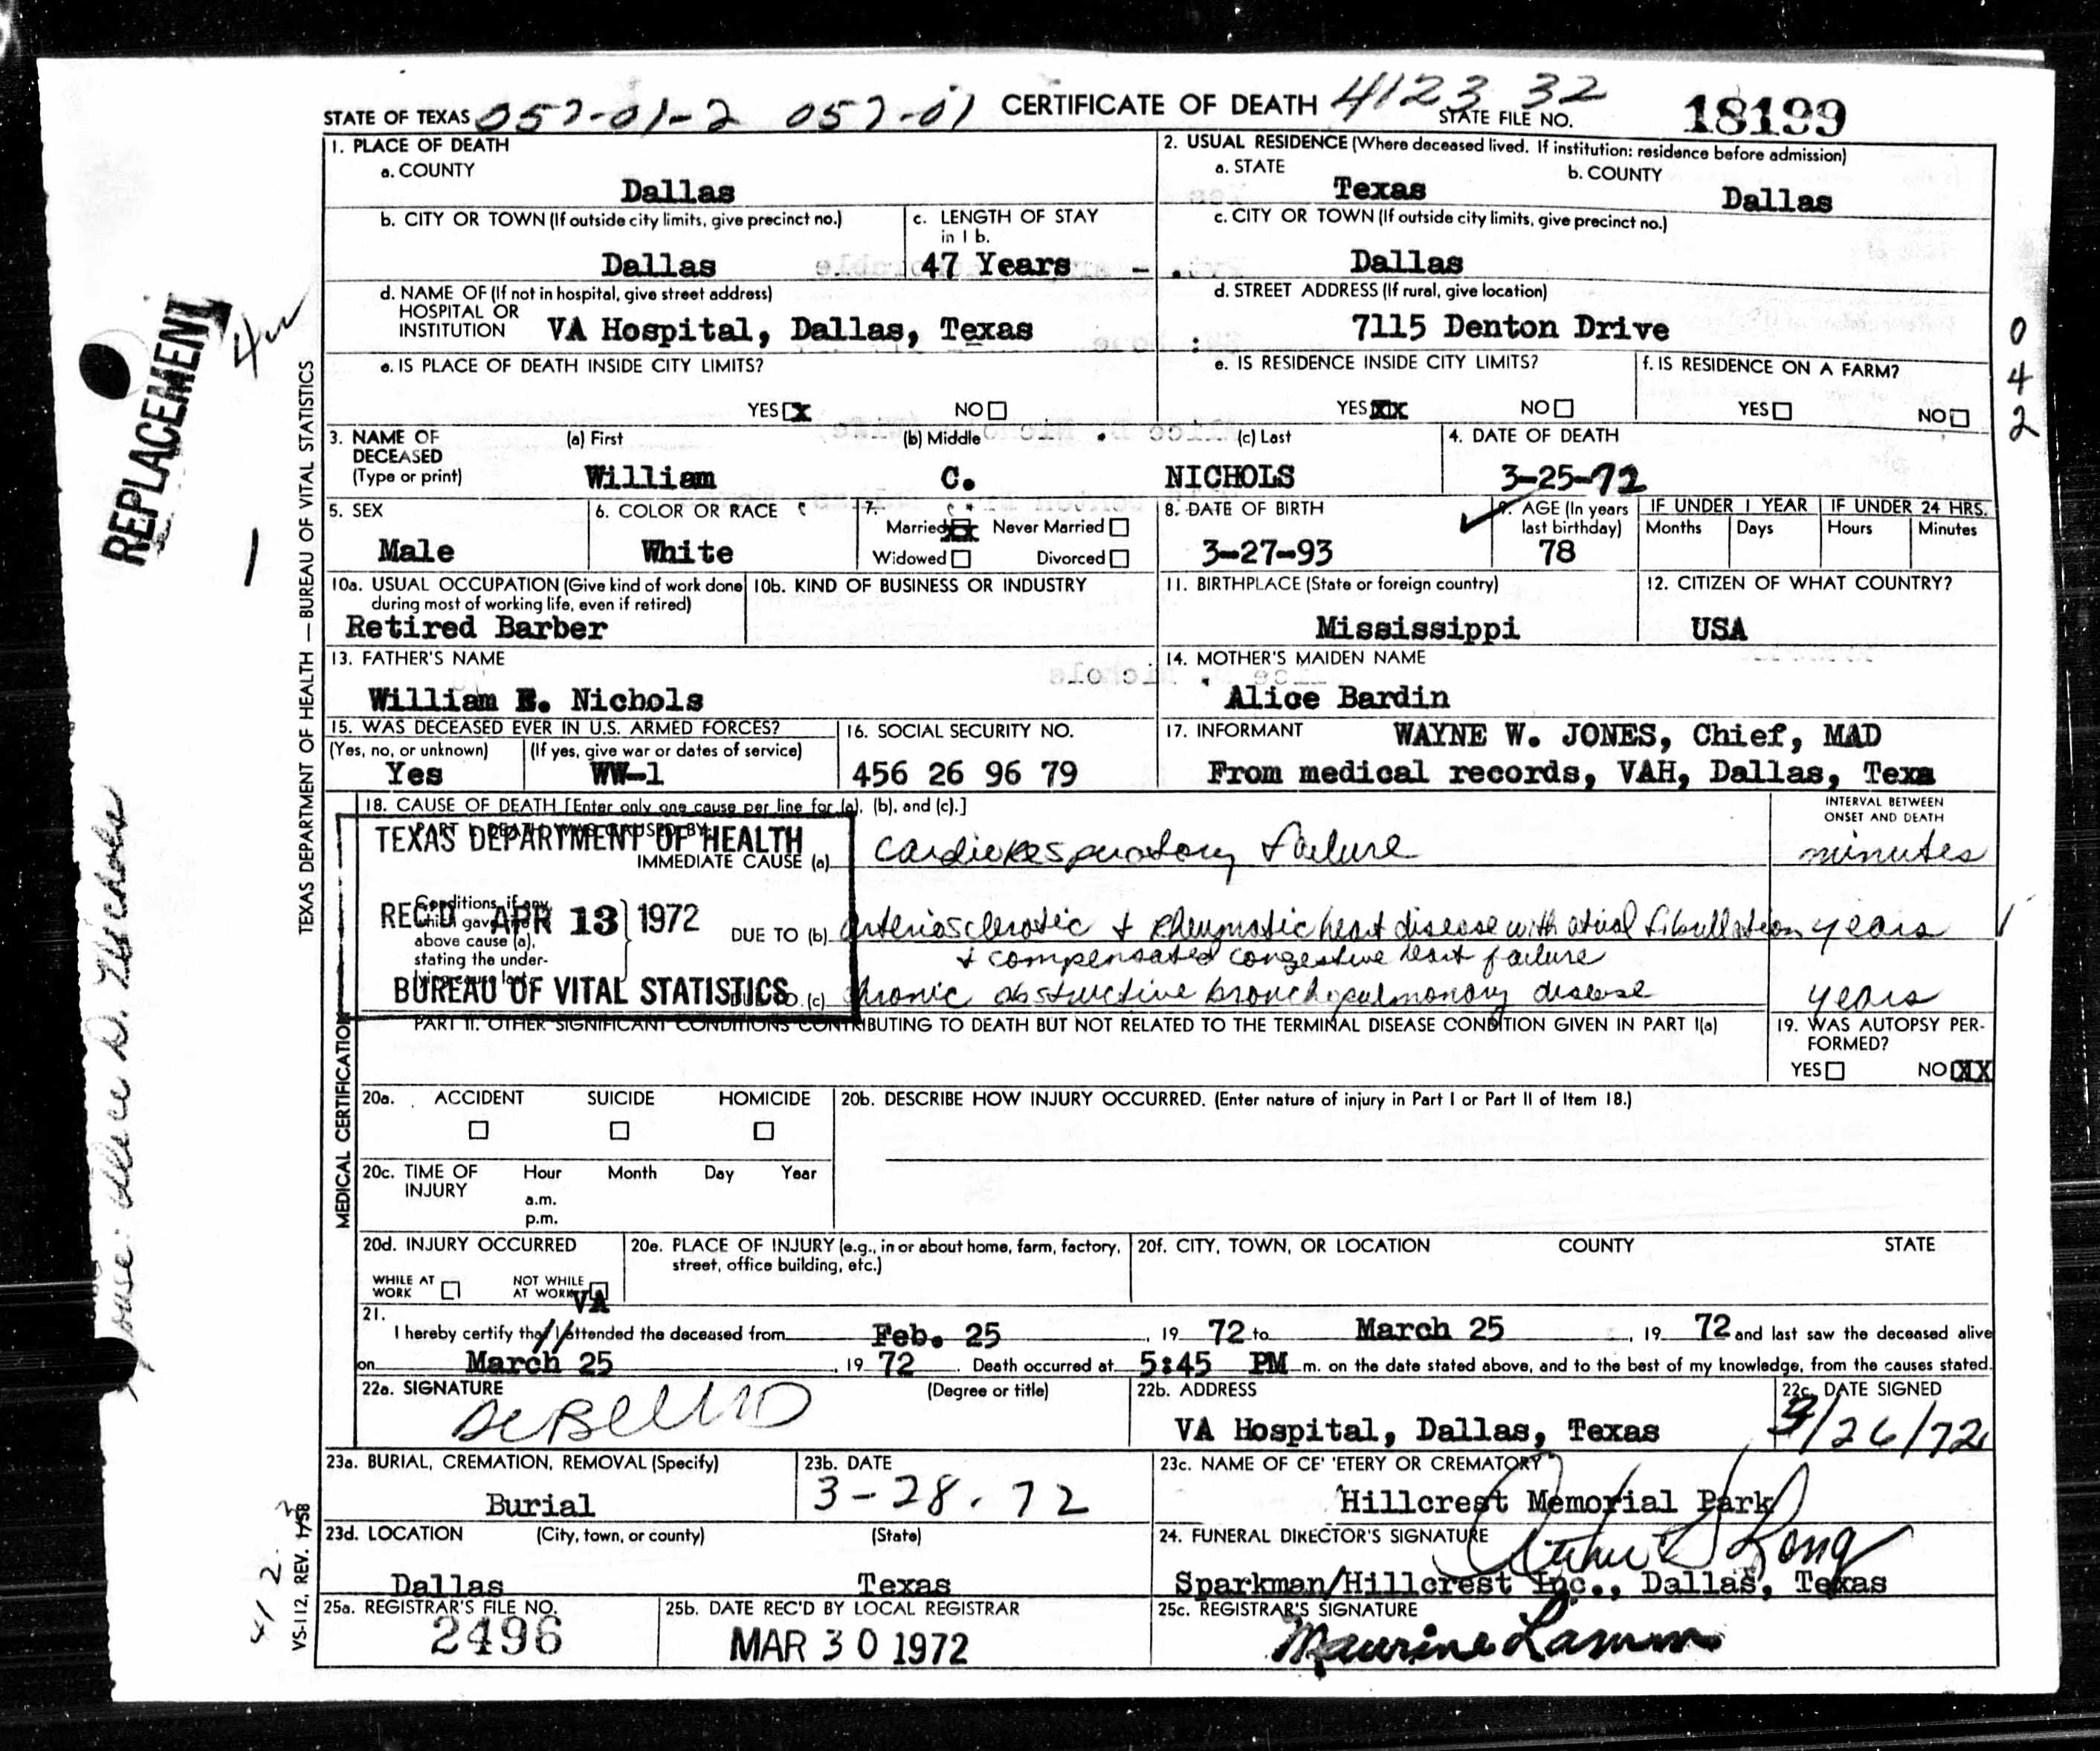 STATE OF TEXAS 057-01-2 057-01 CERTIFICATE OF DEATH 4123 32 STATE FILE NO. 18199
1. PLACE OF DEATH
a. COUNTY
Dallas
2. USUAL RESIDENCE (Where deceased lived. If institution: residence before admission)
a. STATE
Texas
b. COUNTY
Dallas
b. CITY OR TOWN (If outside city limits, give precinct no.)
Dallas
c. LENGTH OF STAY
in 1 b.
47 Years
c. CITY OR TOWN (If outside city limits, give precinct no.)
Dallas
d. NAME OF (If not in hospital, give street address)
HOSPITAL OR
INSTITUTION VA Hospital, Dallas, Texas
d. STREET ADDRESS (If rural, give location)
7115 Denton Drive
e. IS PLACE OF DEATH INSIDE CITY LIMITS?
YES X NO
e. IS RESIDENCE INSIDE CITY LIMITS?
YES XX NO
f. IS RESIDENCE ON A FARM?
YES NO
0
4
2
3. NAME OF
DECEASED
(Type or print)
(a) First
William
(b) Middle
C.
(c) Last
NICHOLS
4. DATE OF DEATH
3-25-72
5. SEX
Male
6. COLOR OR RACE
White
7.
Married X Never Married
Widowed Divorced
8. DATE OF BIRTH
3-27-93
9. AGE (In years
last birthday)
78
IF UNDER 1 YEAR
Months Days
IF UNDER 24 HRS.
Hours Minutes
10a. USUAL OCCUPATION (Give kind of work done
during most of working life, even if retired)
Retired Barber
10b. KIND OF BUSINESS OR INDUSTRY
11. BIRTHPLACE (State or foreign country)
Mississippi
12. CITIZEN OF WHAT COUNTRY?
USA
13. FATHER'S NAME
William E. Nichols
14. MOTHER'S MAIDEN NAME
Alice Bardin
15. WAS DECEASED EVER IN U.S. ARMED FORCES?
(Yes, no, or unknown)
Yes
(If yes, give war or dates of service)
WW-1
16. SOCIAL SECURITY NO.
456 26 96 79
17. INFORMANT WAYNE W. JONES, Chief, MAD
From medical records, VAH, Dallas, Texa
18. CAUSE OF DEATH [Enter only one cause per line for (a), (b), and (c).]
INTERVAL BETWEEN
ONSET AND DEATH
PART I. DEATH WAS CAUSED BY:
TEXAS DEPARTMENT OF HEALTH
IMMEDIATE CAUSE (a) Cardiorespiratory Failure minutes
Conditions, if any,
which gave
above cause (a),
stating the under-
lying cause last.
REC'D APR 13 1972
DUE TO (b) arteriosclerotic + Rheumatic heart disease with atrial fibrillation years
+ compensated congestive heart failure
BUREAU OF VITAL STATISTICS
DUE TO (c) chronic obstructive bronchopulmonary disease years
PART II. OTHER SIGNIFICANT CONDITIONS CONTRIBUTING TO DEATH BUT NOT RELATED TO THE TERMINAL DISEASE CONDITION GIVEN IN PART I(a)
19. WAS AUTOPSY PER-
FORMED?
YES NO XX
20a. ACCIDENT SUICIDE HOMICIDE
20b. DESCRIBE HOW INJURY OCCURRED. (Enter nature of injury in Part I or Part II of Item 18.)
20c. TIME OF
INJURY
Hour Month Day Year
a.m.
p.m.
20d. INJURY OCCURRED
WHILE AT
WORK
NOT WHILE
AT WORK
20e. PLACE OF INJURY (e.g., in or about home, farm, factory,
street, office building, etc.)
20f. CITY, TOWN, OR LOCATION COUNTY STATE
VA
21.
I hereby certify that I attended the deceased from Feb. 25, 19 72 to March 25, 19 72 and last saw the deceased alive
on March 25, 19 72. Death occurred at 5:45 PM m. on the date stated above, and to the best of my knowledge, from the causes stated.
22a. SIGNATURE (Degree or title)
22b. ADDRESS
VA Hospital, Dallas, Texas
22c. DATE SIGNED
3/26/72
23a. BURIAL, CREMATION, REMOVAL (Specify)
Burial
23b. DATE
3-28-72
23c. NAME OF CE' 'ETERY OR CREMATORY
Hillcrest Memorial Park
23d. LOCATION (City, town, or county) (State)
Dallas Texas
24. FUNERAL DIRECTOR'S SIGNATURE
Sparkman/Hillcrest Inc., Dallas, Texas
25a. REGISTRAR'S FILE NO.
2496
25b. DATE REC'D BY LOCAL REGISTRAR
MAR 30 1972
25c. REGISTRAR'S SIGNATURE
Maurine Lamm
REPLACEMENT
TEXAS DEPARTMENT OF HEALTH — BUREAU OF VITAL STATISTICS
MEDICAL CERTIFICATION
VS-112, REV. 1/58
412
D. Nichols